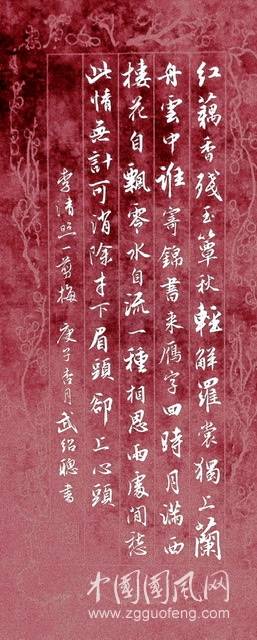 红藕香残玉簟秋輕解羅裳獨上蘭
舟雲中誰寄錦書来雁字回時月滿西
樓花自飄零水自流一種相思兩處閒愁
此情無計可消除才下眉頭卻上心頭
李清照一剪梅 庚子杏月武绍聰書
中國國风网
www.zgguofeng.com